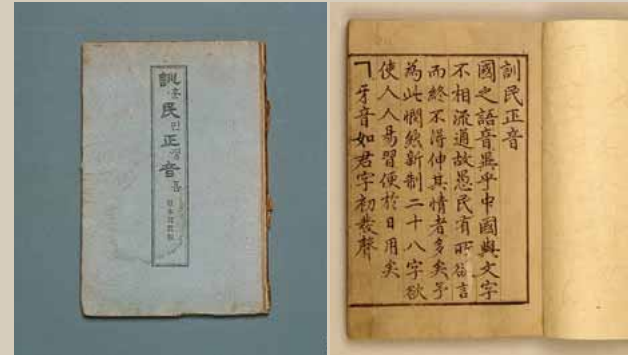 訓훈民민正정音음
訓民正音
國之語音異乎中國與文字
不相流通故愚民有所欲言
而終不得伸其情者多矣予
為此憫然新制二十八字欲
使人人易習便於日用矣
ㄱ牙音如君字初發聲